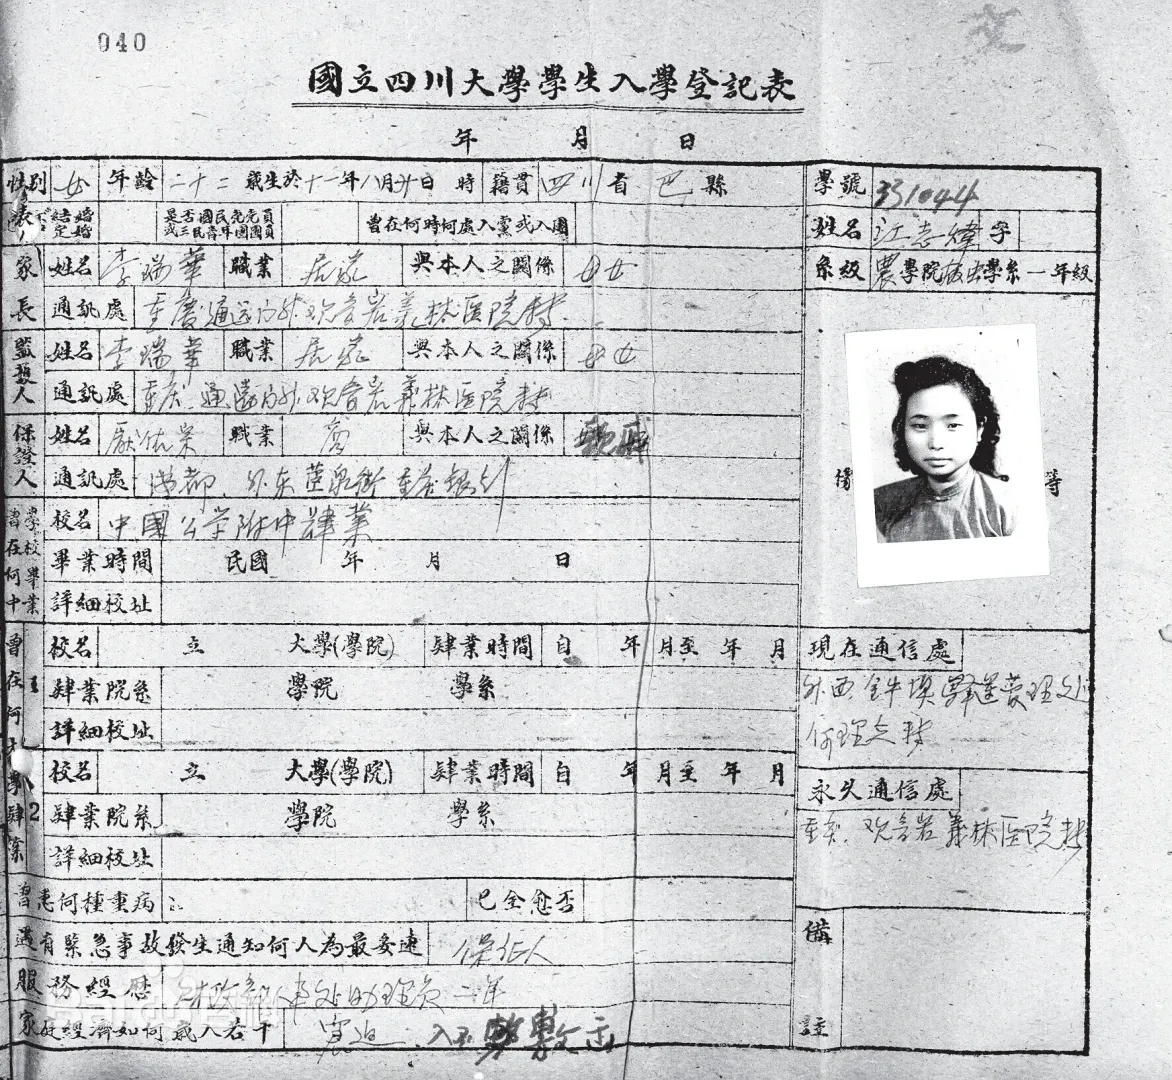 040
國立四川大學學生入學登記表
年 月 日
性別 女 年齡 二十二 歲生於十一年八月廿日 時 籍貫 四川省 巴縣
學號 331044
姓名 江志煒 字
系級 農學院 學系一年級
結婚 定婚 是否國民黨黨員或三民青年團團員 曾在何時何處入黨或入團
家長 姓名 李瑞華 職業 居家 與本人之關係 母女
通訊處 重慶通遠门外 观音岩義林医院轉
監護人 姓名 李瑞華 職業 居家 與本人之關係 母女
通訊處 重庆 通遠门外 观音岩義林医院轉
保證人 姓名 職業 商 與本人之關係 親戚
通訊處 成都 外东 重庆銀行
曾在何中學校畢業 校名 中國公学附中肄業
畢業時間 民國 年 月 日
詳細校址
曾在何大學肄業
1 校名 立 大學(學院) 肄業時間 自 年 月至 年 月
肄業院系 學院 學系
詳細校址
2 校名 立 大學(學院) 肄業時間 自 年 月至 年 月
肄業院系 學院 學系
詳細校址
曾患何種重病 已全愈否
遇有緊急事故發生通知何人為最妥速 保征人
服務經歷 財政部 人事处助理员 二年
家庭經濟如何歲入若干 窘迫 入不敷
等
現在通信處
外西 管理处
何理立轉
永久通信處
重庆 观音岩義林医院轉
備註